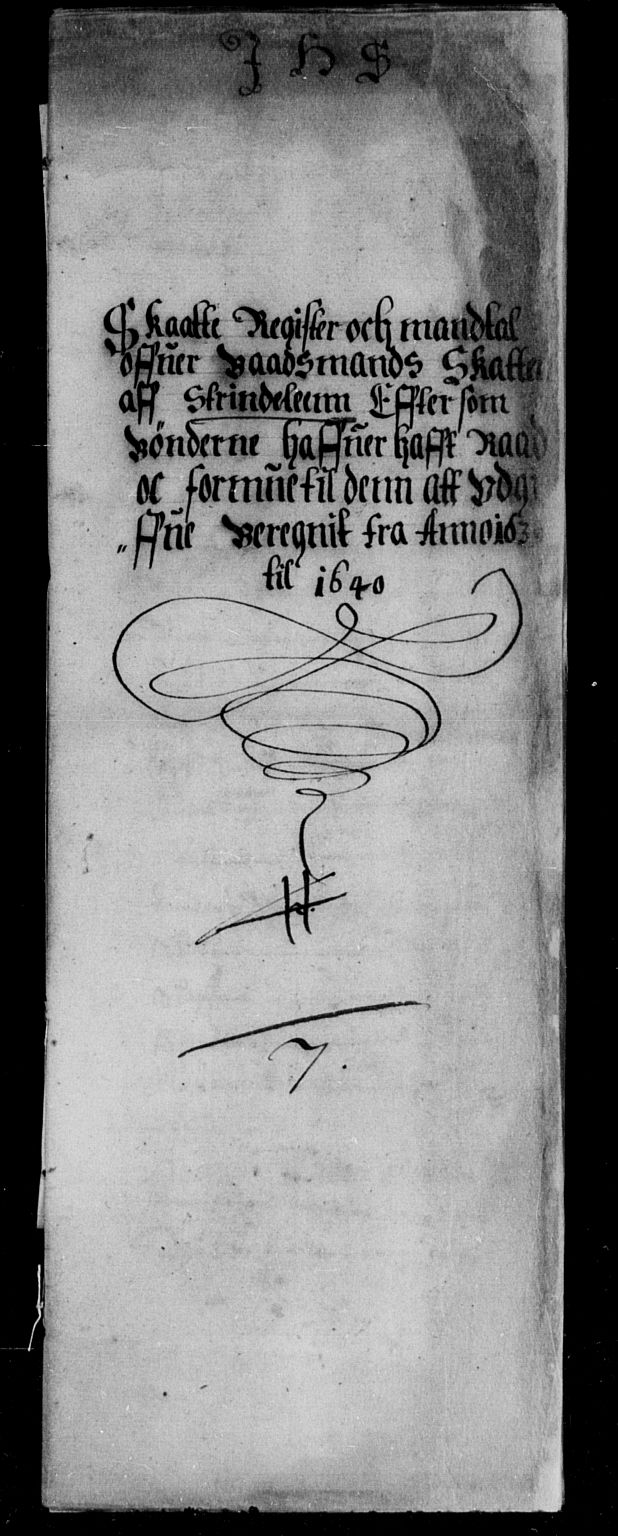 J H S
Skaatte Register och mandtal
offuer Baadsmands Skatten
aff Strindeleenn Effter som
Bønderne haffuer hafft Raad
oc formue til denn att Vdgi
„ffue Beregnit fra Anno 163
til 1640
7.